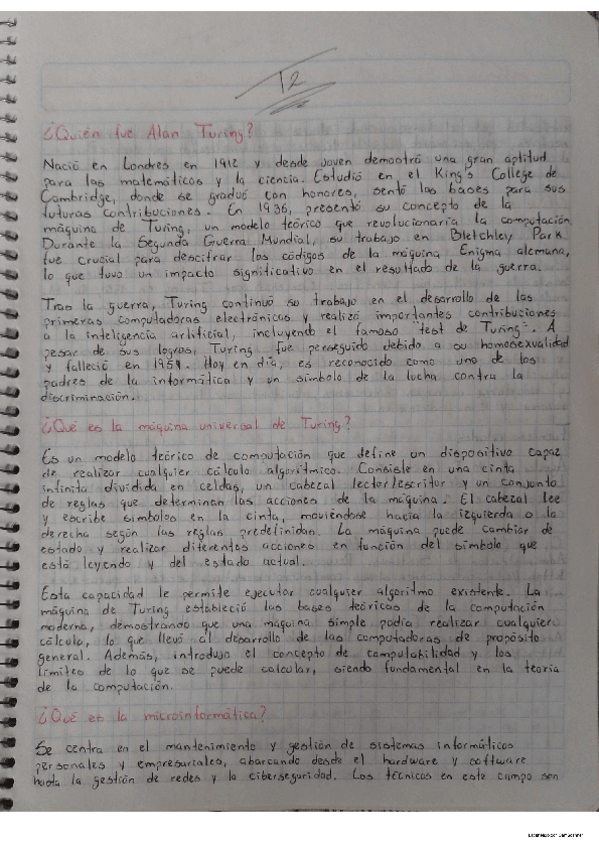 T2
¿Quién fue Alan Turing?
Nació en Londres en 1912 y desde joven demostró una gran aptitud
para las matemáticas y la ciencia. Estudió en el King's College de
Cambridge, donde se graduó con honores, sentó las bases para sus
futuras contribuciones. En 1936, presentó su concepto de la
máquina de Turing, un modelo teórico que revolucionaría la computación.
Durante la Segunda Guerra Mundial, su trabajo en Bletchley Park
fue crucial para descifrar los códigos de la máquina Enigma alemana,
lo que tuvo un impacto significativo en el resultado de la guerra.
Tras la guerra, Turing continuó su trabajo en el desarrollo de las
primeras computadoras electrónicas y realizó importantes contribuciones
a la inteligencia artificial, incluyendo el famoso "test de Turing". A
pesar de sus logros, Turing fue perseguido debido a su homosexualidad
y falleció en 1954. Hoy en día, es reconocido como uno de los
padres de la informática y un símbolo de la lucha contra la
discriminación.
¿Qué es la máquina universal de Turing?
Es un modelo teórico de computación que define un dispositivo capaz
de realizar cualquier cálculo algorítmico. Consiste en una cinta
infinita dividida en celdas, un cabezal lector/escritor y un conjunto
de reglas que determinan las acciones de la máquina. El cabezal lee
y escribe símbolos en la cinta, moviéndose hacia la izquierda o la
derecha según las reglas predefinidan. La máquina puede cambiar de
estado y realizar diferentes acciones en función del símbolo que
está leyendo y del estado actual.
Esta capacidad le permite ejecutar cualquier algoritmo existente. La
máquina de Turing estableció las bases teóricas de la computación
moderna, demostrando que una máquina simple podía realizar cualquier
cálculo, lo que llevó al desarrollo de las computadoras de propósito
general. Además, introdujo el concepto de computabilidad y los
límites de lo que se puede calcular, siendo fundamental en la teoría
de la computación.
¿Qué es la microinformática?
Se centra en el mantenimiento y gestión de sistemas informáticos
personales y empresariales, abarcando desde el hardware y software
hasta la gestión de redes y la ciberseguridad. Los técnicos en este campo son